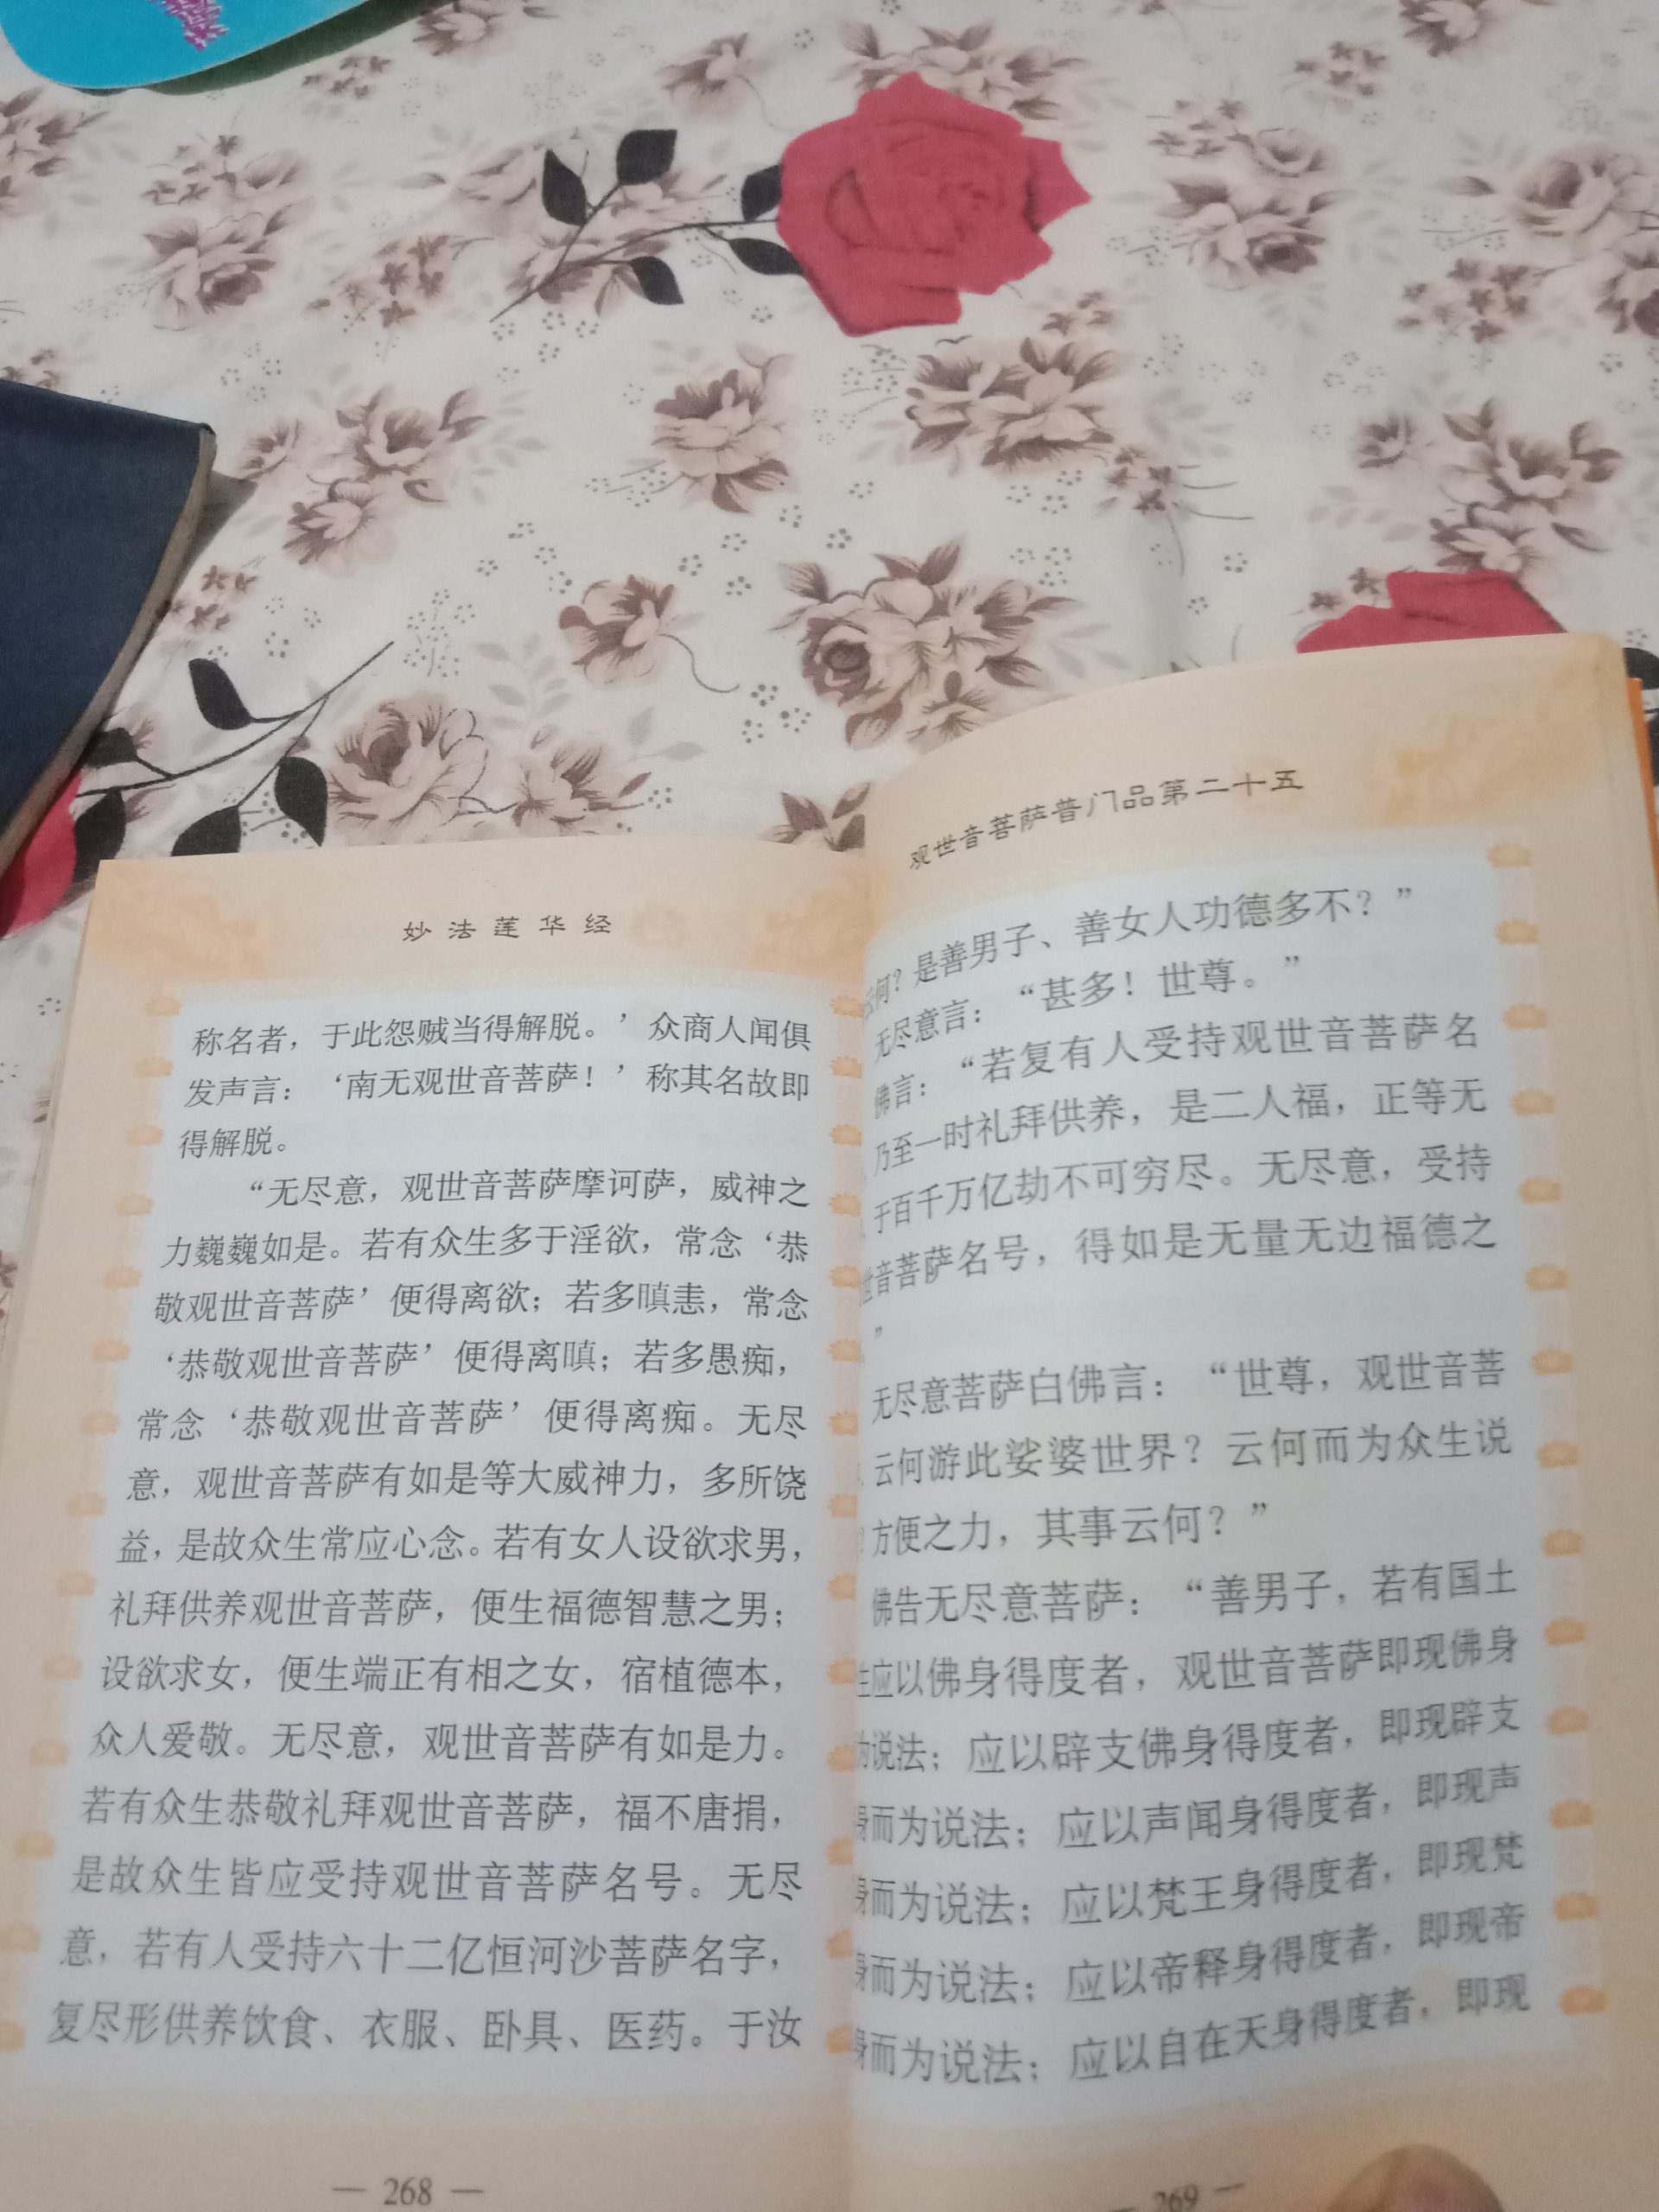 妙法莲华经
称名者，于此怨贼当得解脱。’众商人闻俱
发声言：‘南无观世音菩萨！’称其名故即
得解脱。
“无尽意，观世音菩萨摩诃萨，威神之
力巍巍如是。若有众生多于淫欲，常念‘恭
敬观世音菩萨’便得离欲；若多嗔恚，常念
‘恭敬观世音菩萨’便得离嗔；若多愚痴，
常念‘恭敬观世音菩萨’便得离痴。无尽
意，观世音菩萨有如是等大威神力，多所饶
益，是故众生常应心念。若有女人设欲求男，
礼拜供养观世音菩萨，便生福德智慧之男；
设欲求女，便生端正有相之女，宿植德本，
众人爱敬。无尽意，观世音菩萨有如是力。
若有众生恭敬礼拜观世音菩萨，福不唐捐，
是故众生皆应受持观世音菩萨名号。无尽
意，若有人受持六十二亿恒河沙菩萨名字，
复尽形供养饮食、衣服、卧具、医药。于汝
— 268 —
观世音菩萨普门品第二十五
何？是善男子、善女人功德多不？”
无尽意言：“甚多！世尊。”
佛言：“若复有人受持观世音菩萨名
乃至一时礼拜供养，是二人福，正等无
于百千万亿劫不可穷尽。无尽意，受持
世音菩萨名号，得如是无量无边福德之
”
无尽意菩萨白佛言：“世尊，观世音菩
云何游此娑婆世界？云何而为众生说
方便之力，其事云何？”
佛告无尽意菩萨：“善男子，若有国土
应以佛身得度者，观世音菩萨即现佛身
说法；应以辟支佛身得度者，即现辟支
身而为说法；应以声闻身得度者，即现声
身而为说法；应以梵王身得度者，即现梵
身而为说法；应以帝释身得度者，即现帝
身而为说法；应以自在天身得度者，即现
— 269 —